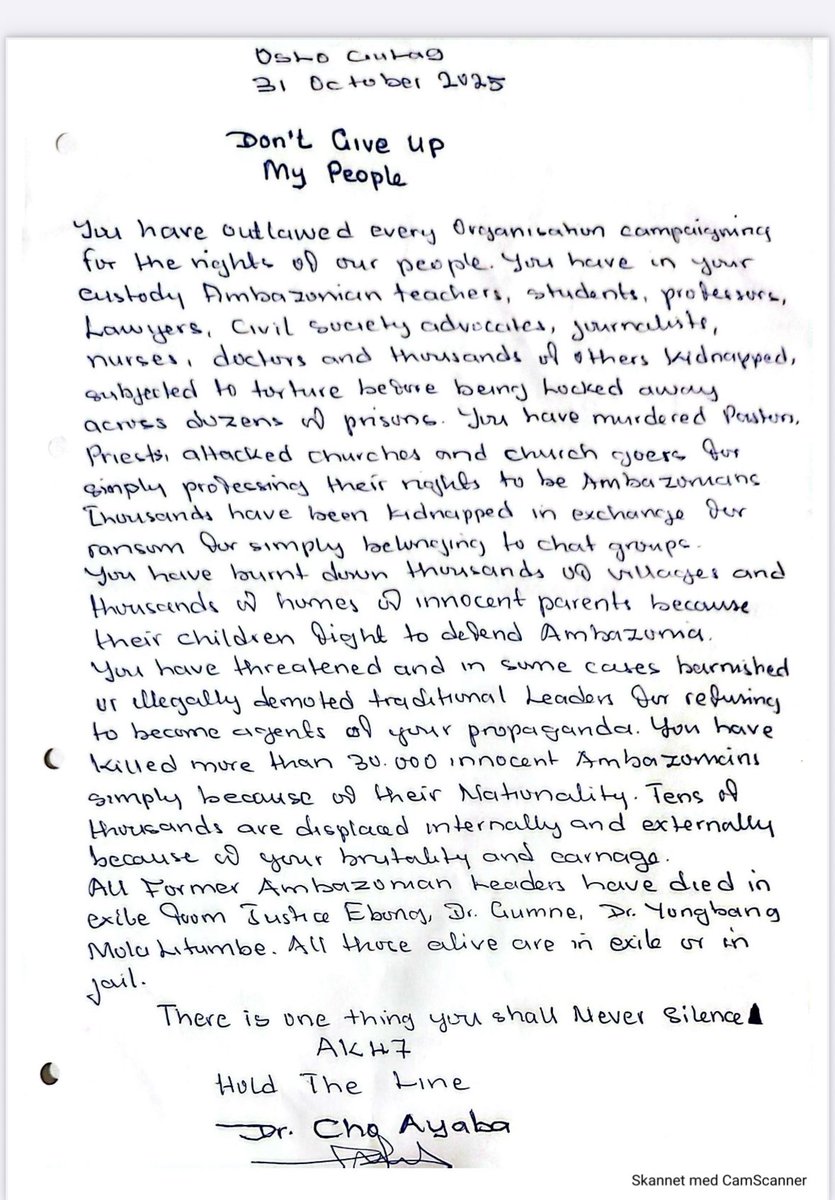 Oslo Gulag
31 October 2025
Don't Give up
My People
You have outlawed every Organisation campaigning
for the rights of our people. You have in your
custody Ambazonian teachers, students, professors,
Lawyers, Civil society advocates, journalists,
nurses, doctors and thousands of others kidnapped,
subjected to torture before being Locked away
across dozens of prisons. You have murdered Pastors,
Priests, attacked churches and church goers for
simply professing their rights to be Ambazonians
Thousands have been kidnapped in exchange for
ransom for simply belonging to chat groups.
You have burnt down thousands of villages and
thousands of homes of innocent parents because
their children fight to defend Ambazonia.
You have threatened and in some cases barnished
or illegally demoted traditional Leaders for refusing
to become agents of your propaganda. You have
killed more than 30.000 innocent Ambazonians
simply because of their Nationality. Tens of
thousands are displaced internally and externally
because of your brutality and carnage.
All Former Ambazonian Leaders have died in
exile from Justice Ebong, Dr. Gumne, Dr. Yongbang
Mola Litumbe. All those alive are in exile or in
jail.
There is one thing you shall Never Silence
AK47
Hold The Line
Dr. Cho Ayaba
Skannet med CamScanner